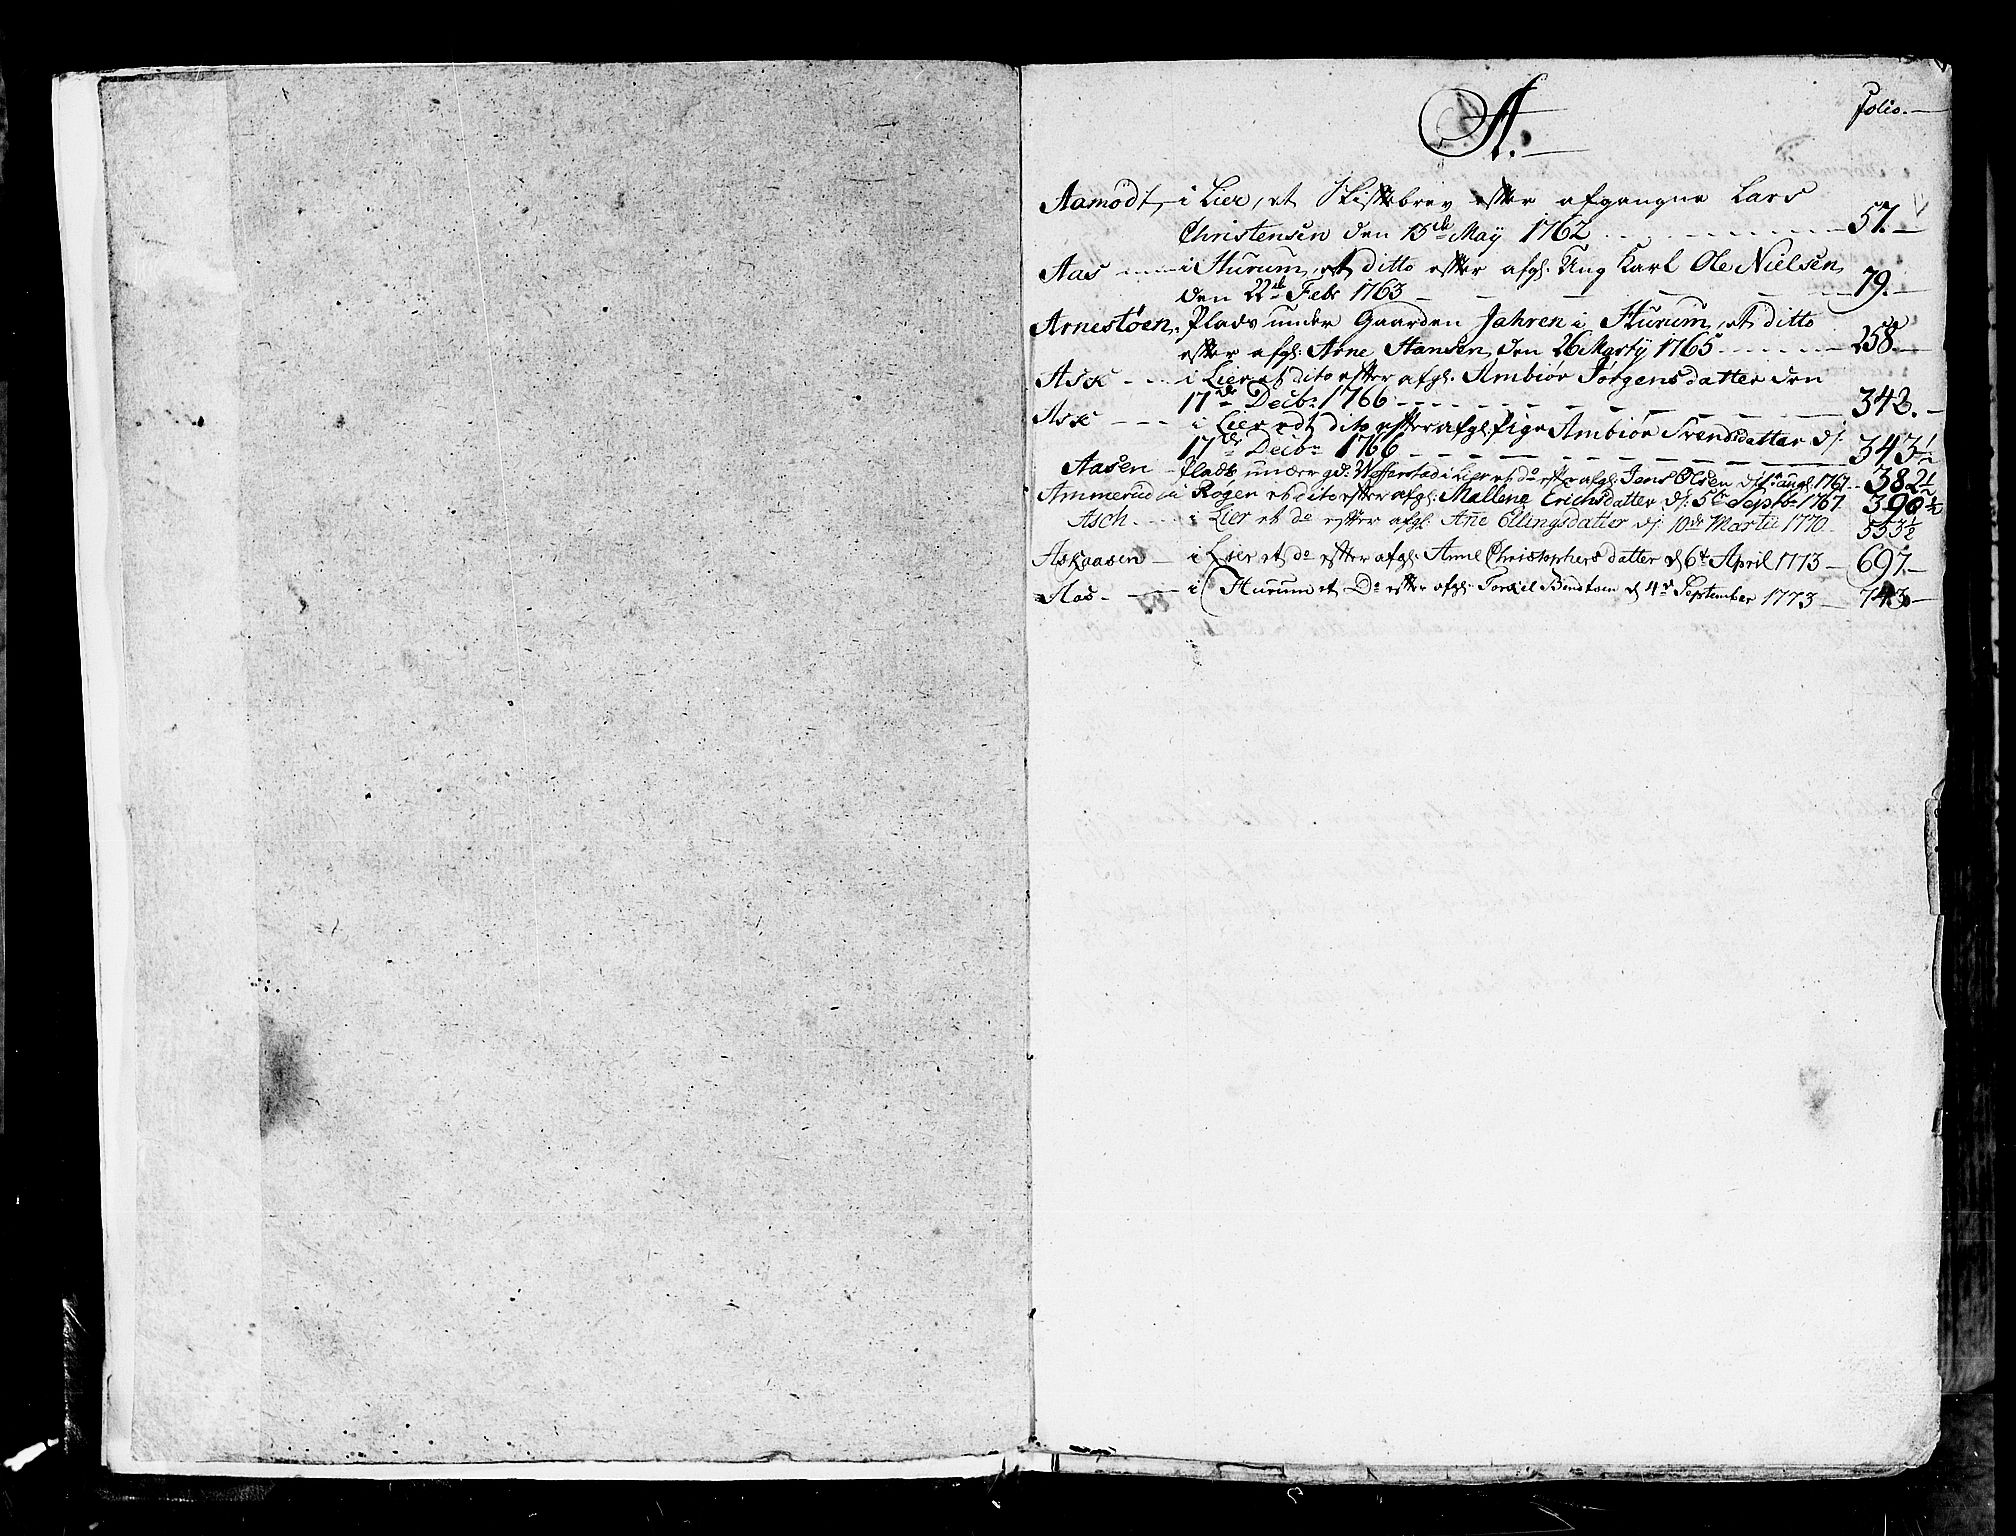 A.
folio.
Aamodt, i Lier, et Skiftebrev efter afgangne Lars
Christensen den 15de May 1762 57.
Aas i Hurum, et ditto efter afg: Ung Karl Ole Nielsen
den 22de Febr 1763 79.
Arnestøen, Plads under Gaarden Jahren i Hurum, et ditto
efter afg: Arne Hansen, den 26 Marty 1765 258
Ask i Lier et dito efter afg: Ambiør Jørgensdatter den
17de Decbr 1766 342.
Ask i Lier edt dito efter afg: pige Ambiør Svendsdatter d:
17de Decbr 1766 343½
Aasen Plads under gd: i Lier et do efter afg: Jens Olsen d: augl. 1767 382½
Ammerud i Røgen et dito efter afg: Mallene Erichsdatter d: 5te Septbr 1767 390½
Asch i Lier et do efter afg: Añe Ellingsdatter d: 10de Martii 1770 553½
Askaasen i Lier et do efter afg: Anne Christophersdatter d 6t April 1773 697.
Aas i Hurum et Do efter afg: Torkel Bendtsen d 4de September 1773 743